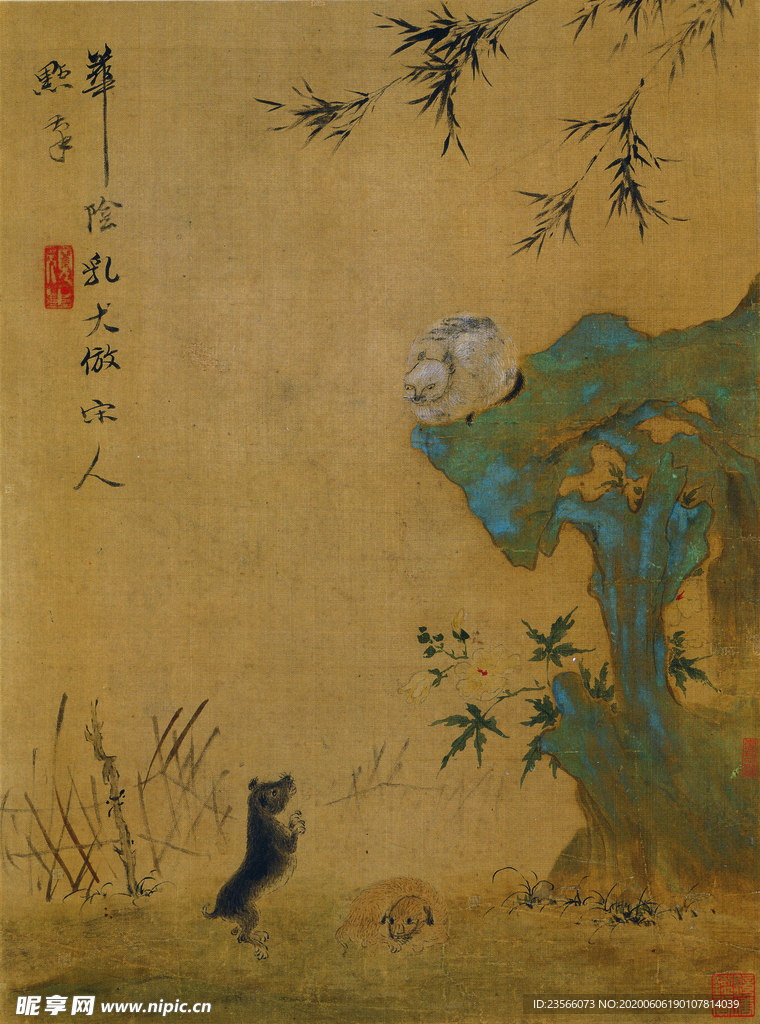 華陰乳犬倣宋人
點筆
昵享网 www.nipic.cn
ID:23566073 NO:20200606190107814039